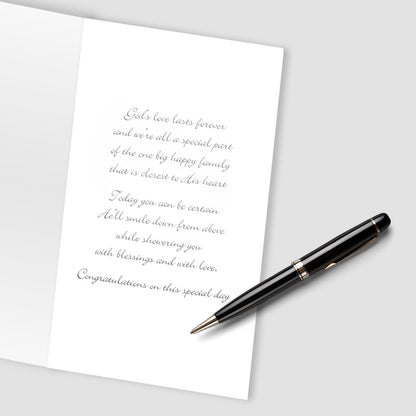 God's love lasts forever
and we're all a special part
of the one big happy family
that is closest to His heart
Today you can be certain
He'll smile down from above
while showering you
with blessings and with love.
Congratulations on this special day